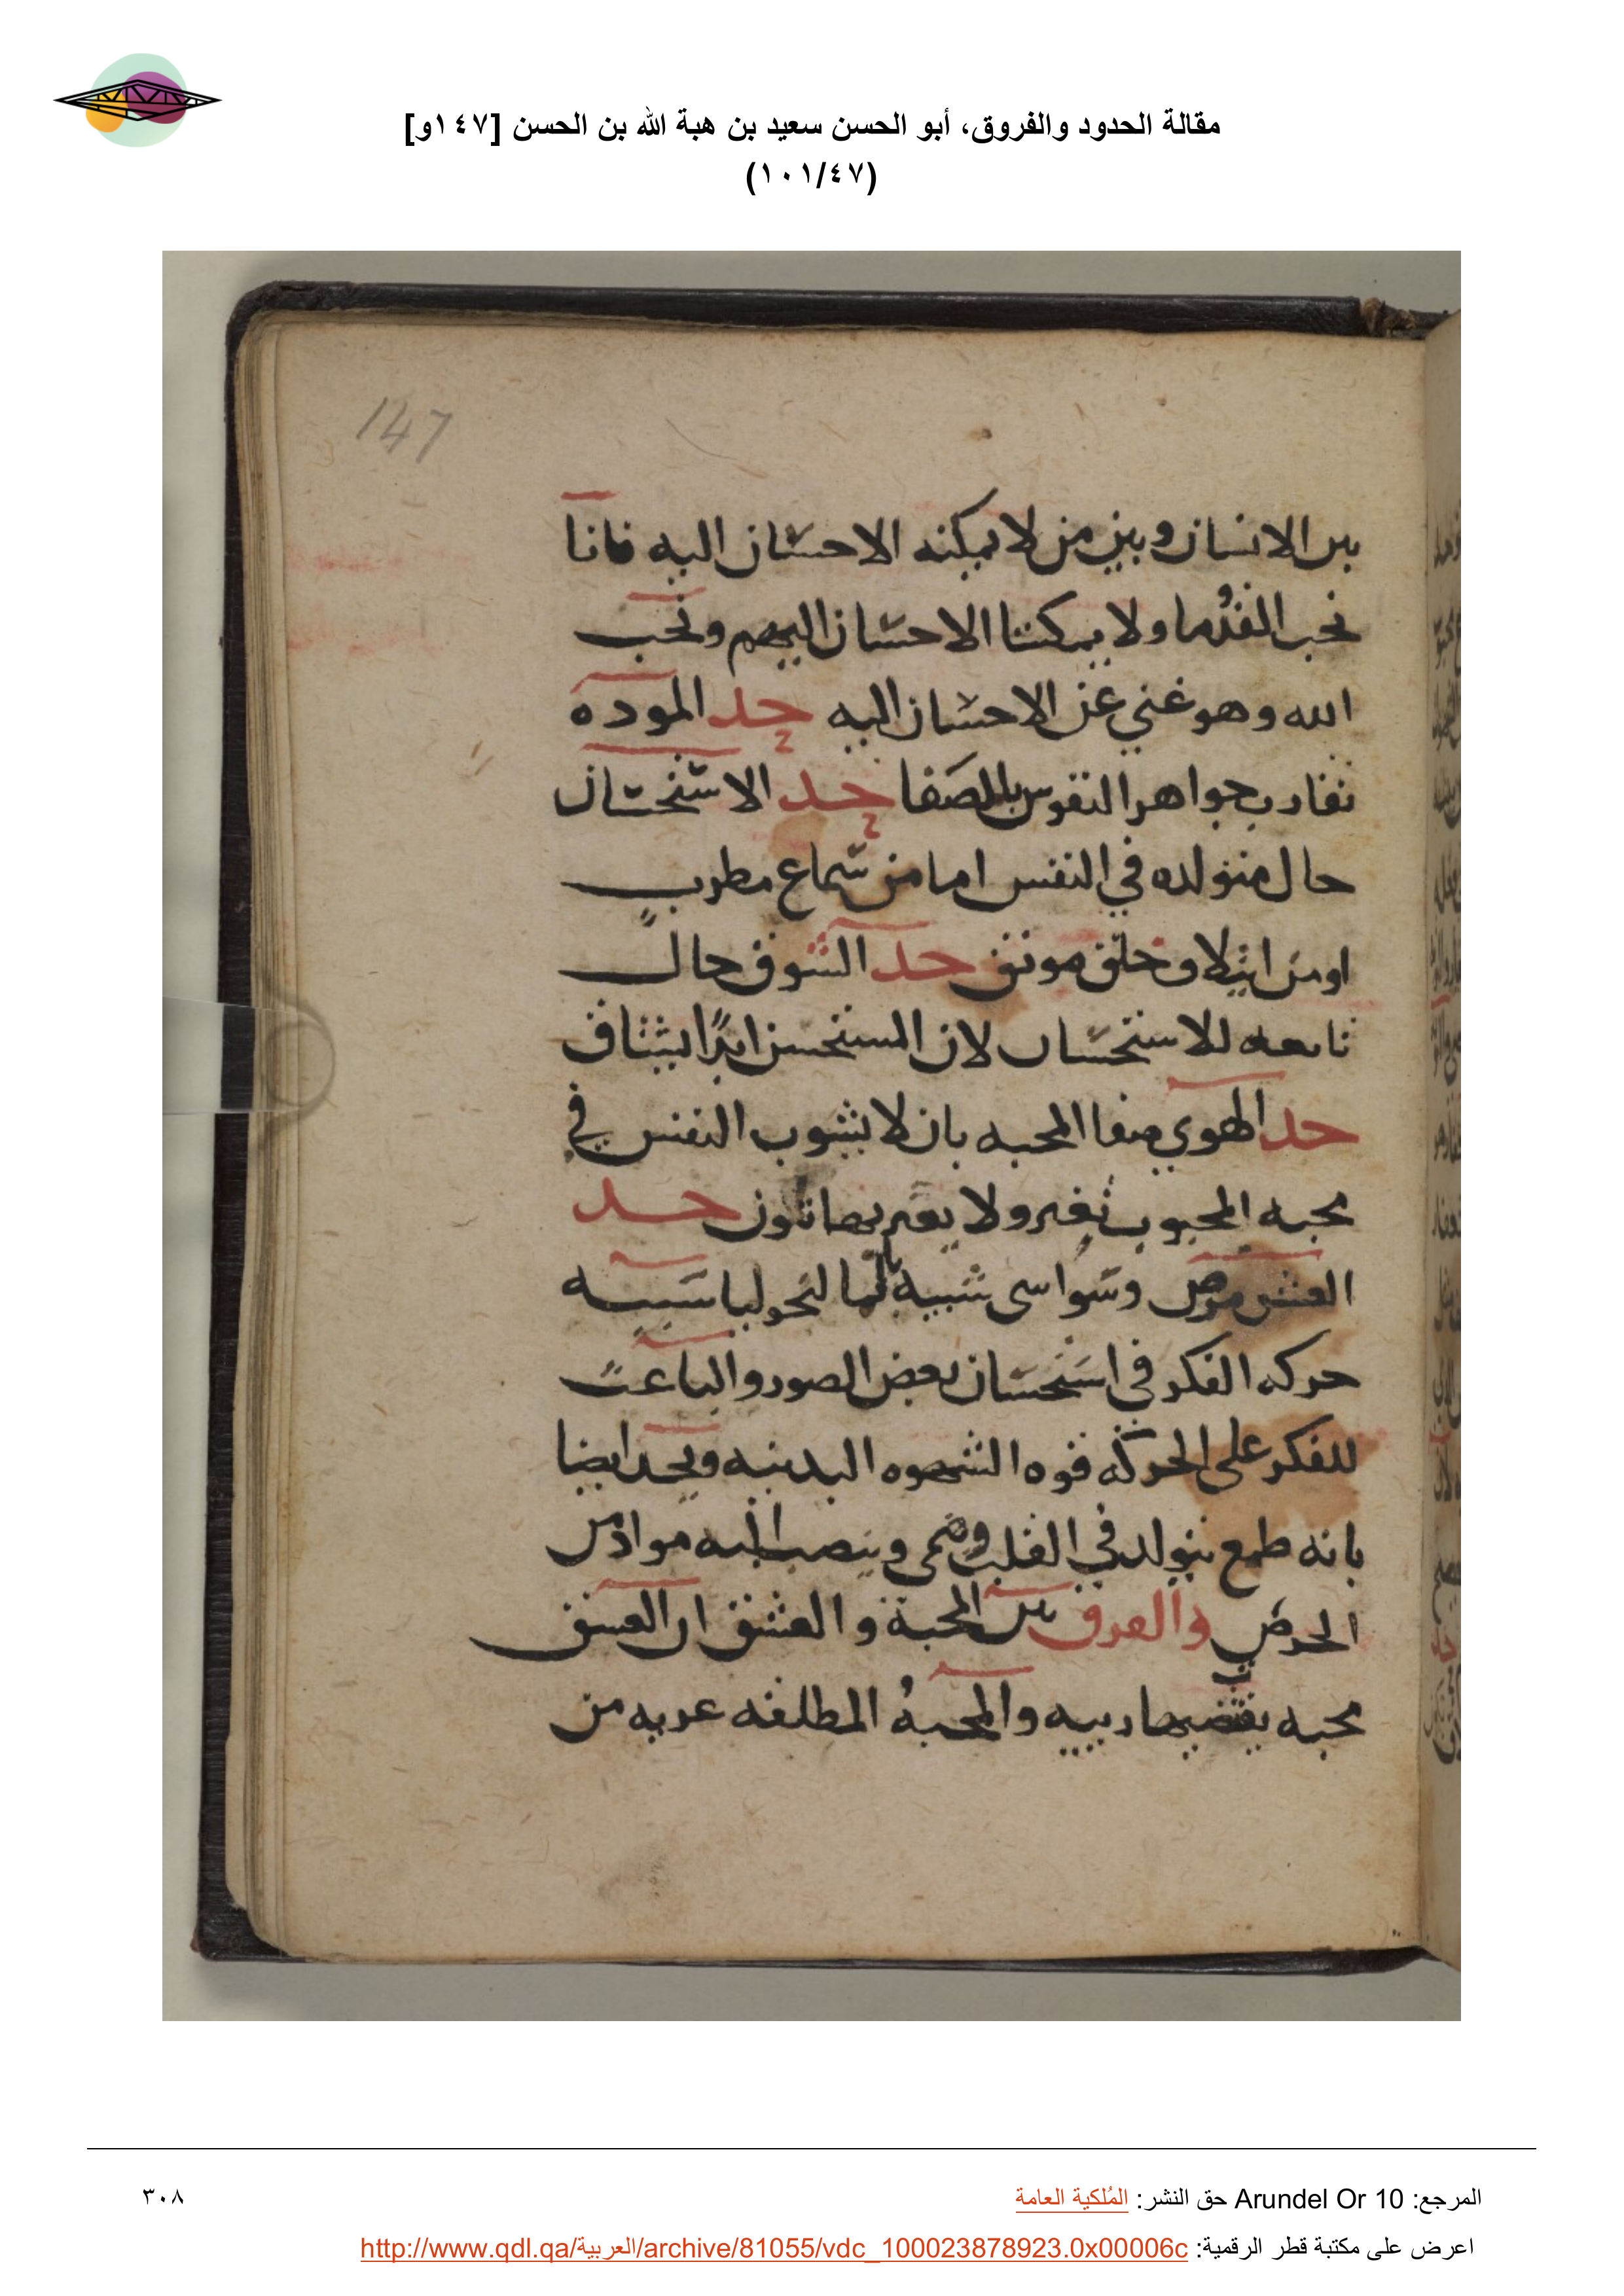 مقالة الحدود والفروق، أبو الحسن سعيد بن هبة الله بن الحسن [١٤٧و]
(١٠١/٤٧)
147
بين الانسان وبين من لا يمكنه الاحسان اليه فانا
نحب القدما ولا يمكننا الاحسان اليهم ونحب
الله وهو غني عن الاحسان اليه حد الموده
تقارب جواهر النفوس بالصفا حد الاستحسان
حال متولده في النفس اما من سماع مطرب
او من وخلق مونق حد الشوق حال
تابعه للاستحسان لان المستحسن ابدًا يشتاق
حد الهوي صفا المحبه بان لا يشوب النفس في
محبه المحبوب تغير ولا يعتريها تلون حد
العشق مرض وسواسى شبيه بالمالنخوليا سببه
حركه الفكر في استحسان بعض الصور والباعث
للفكر على الحركه قوه الشهوه البدنيه ويحد ايضا
بانه طمع يتولد في القلب وينمى وينصب اليه مواد من
الحرص والفرق بين المحبة والعشق ان العشق
محبه يقتضيها ريبه والمحبهُ المطلقه عريه من
المرجع: Arundel Or 10 حق النشر: المُلكية العامة
٣٠٨
اعرض على مكتبة قطر الرقمية: http://www.qdl.qa/العربية/archive/81055/vdc_100023878923.0x00006c